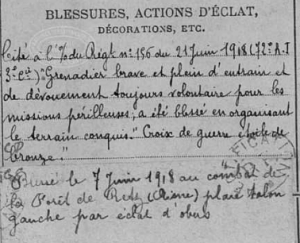 BLESSURES, ACTIONS D'ÉCLAT,
DÉCORATIONS, ETC.
Cité à l'O. du Régt n° 156 du 21 Juin 1918 (72e A.I
3e Cie): "Grenadier brave et plein d'entrain et
de dévouement toujours volontaire pour les
missions périlleuses; a été blessé en organisant
le terrain conquis." Croix de guerre étoile de
bronze."
Blessé le 7 Juin 1918 au combat de
la Forêt de Retz (Aisne) plaie talon
gauche par éclat d'obus